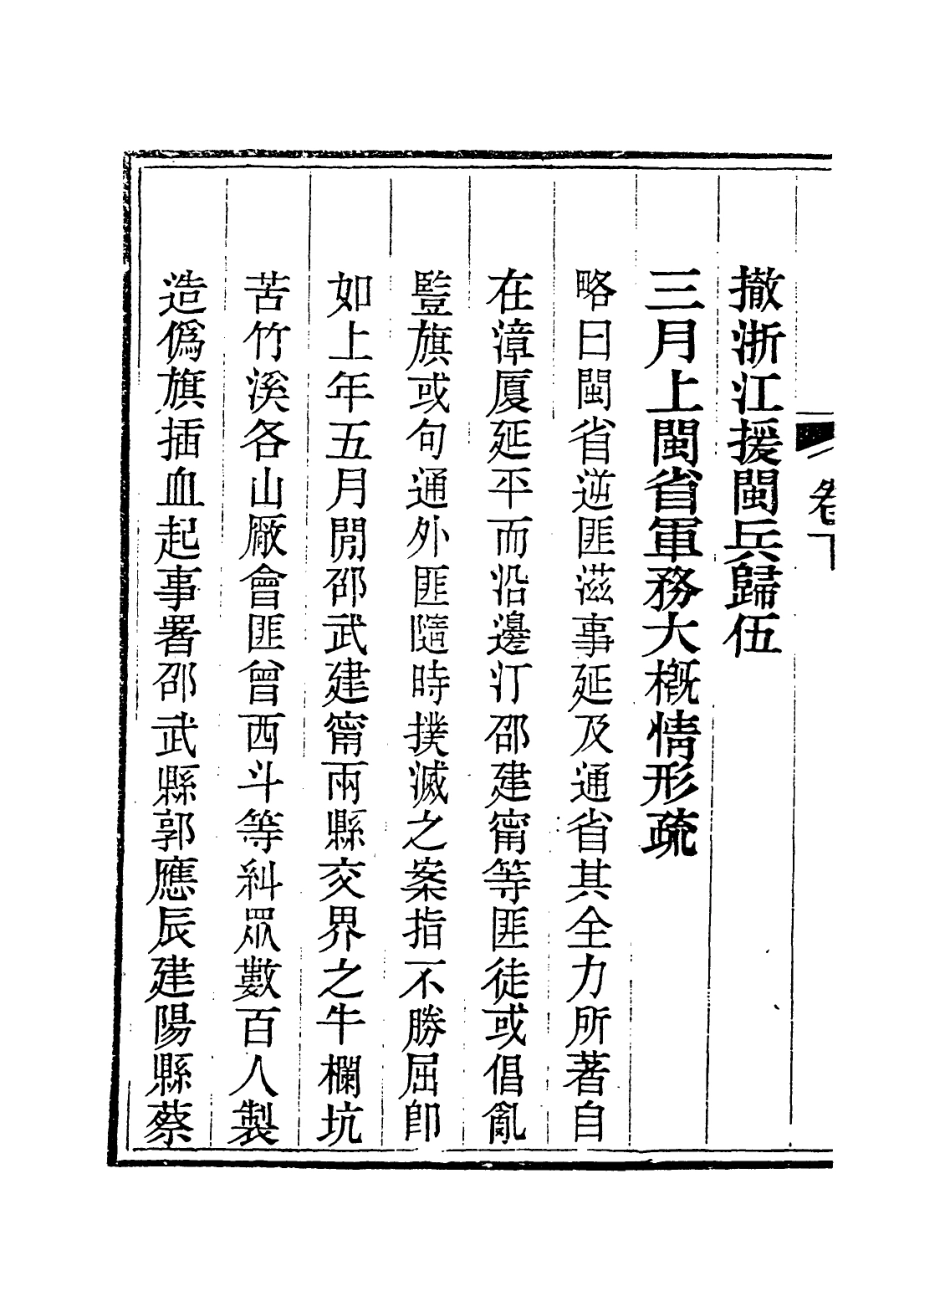 卷下
撤浙江援閩兵歸伍
三月上閩省軍務大槪情形疏
略曰閩省逆匪滋事延及通省其全力所著自
在漳厦延平而沿邊汀邵建甯等匪徒或倡亂
豎旗或句通外匪隨時撲滅之案指不勝屈卽
如上年五月閒邵武建甯兩縣交界之牛欄坑
苦竹溪各山廠會匪曾西斗等糾眾數百人製
造僞旗插血起事署邵武縣郭應辰建陽縣蔡